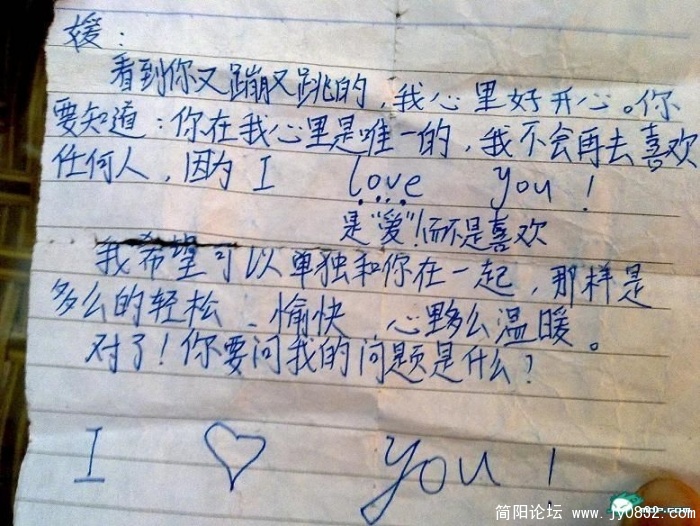 媛：
看到你又蹦又跳的，我心里好开心。你
要知道：你在我心里是唯一的，我不会再去喜欢
任何人，因为 I love you！
是“爱”！而不是喜欢
我希望可以单独和你在一起，那样是
多么的轻松、愉快、心里多么温暖。
对了！你要问我的问题是什么？
I ♡ you！
简阳论坛 www.jy0832.com